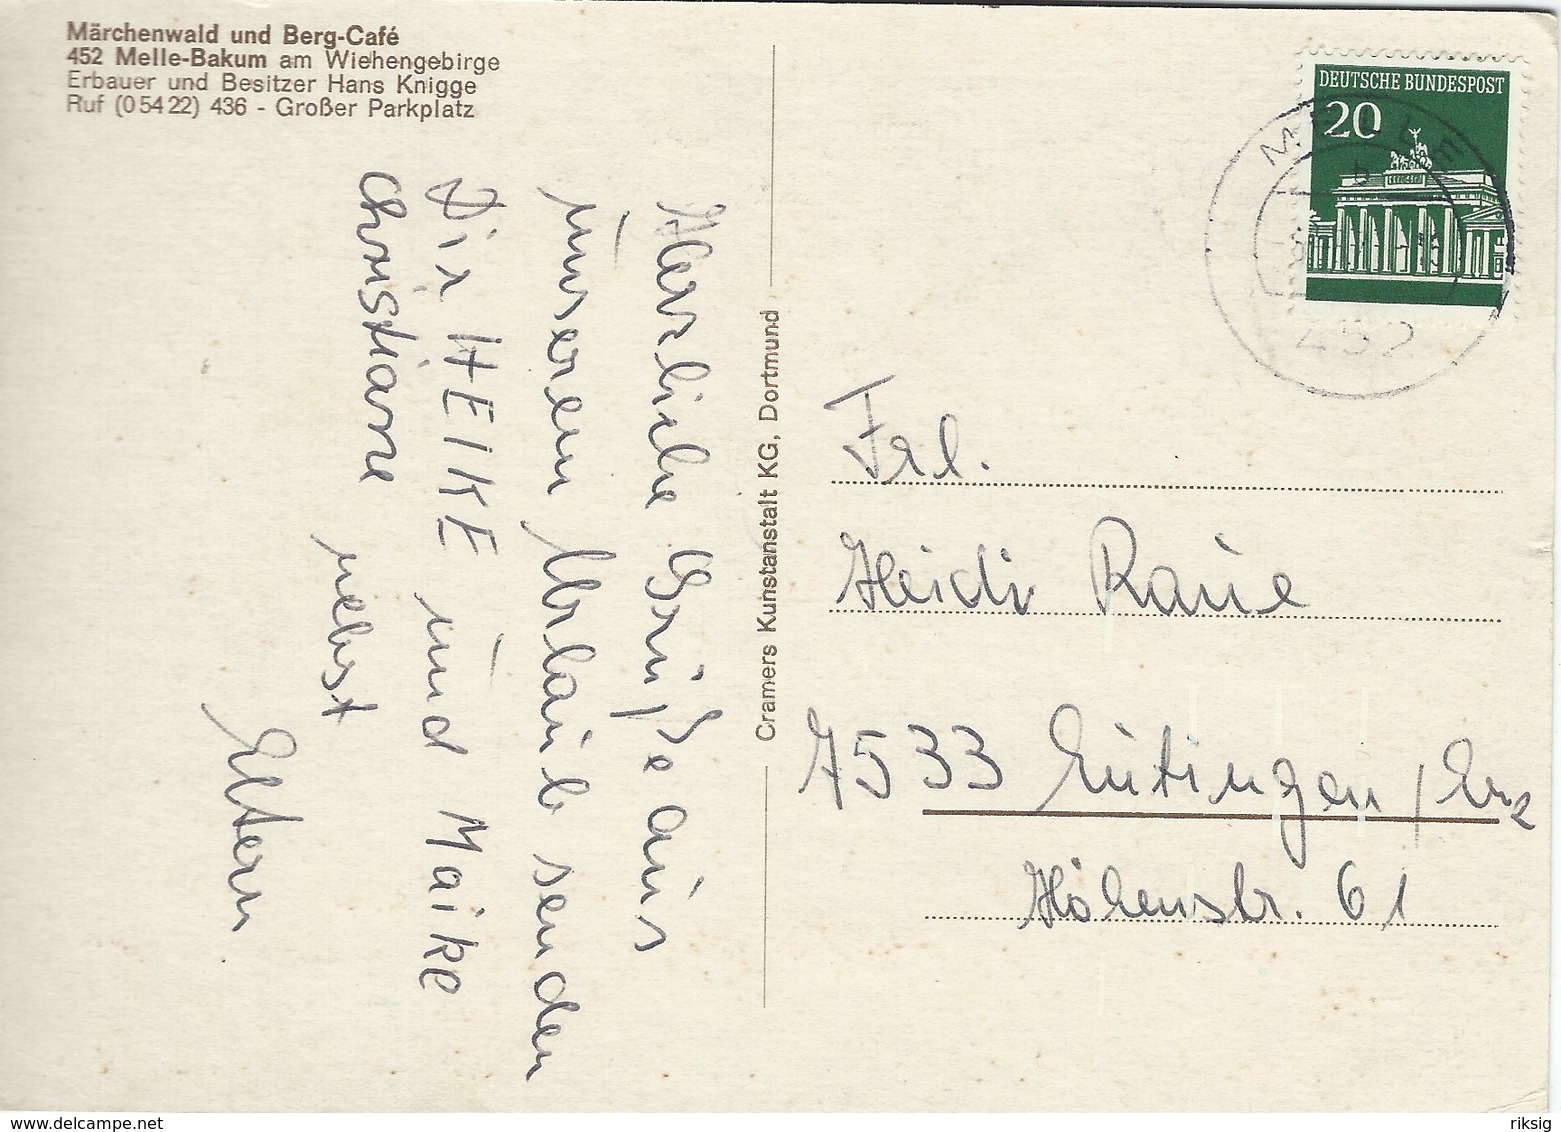 Märchenwald und Berg-Café
452 Melle-Bakum am Wiehengebirge
Erbauer und Besitzer Hans Knigge
Ruf (05422) 436 - Großer Parkplatz
Herzliche Grüße aus
unserem Urlaub senden
Dir HEIKE und Maike
Christiane
nebst
Eltern
Cramers Kunstanstalt KG, Dortmund
DEUTSCHE BUNDESPOST
20
MELLE
b
452
Frl.
Heidi Raue
7533 Eutingen / Enz
Höhenstr. 61
delcampe.net
riksig